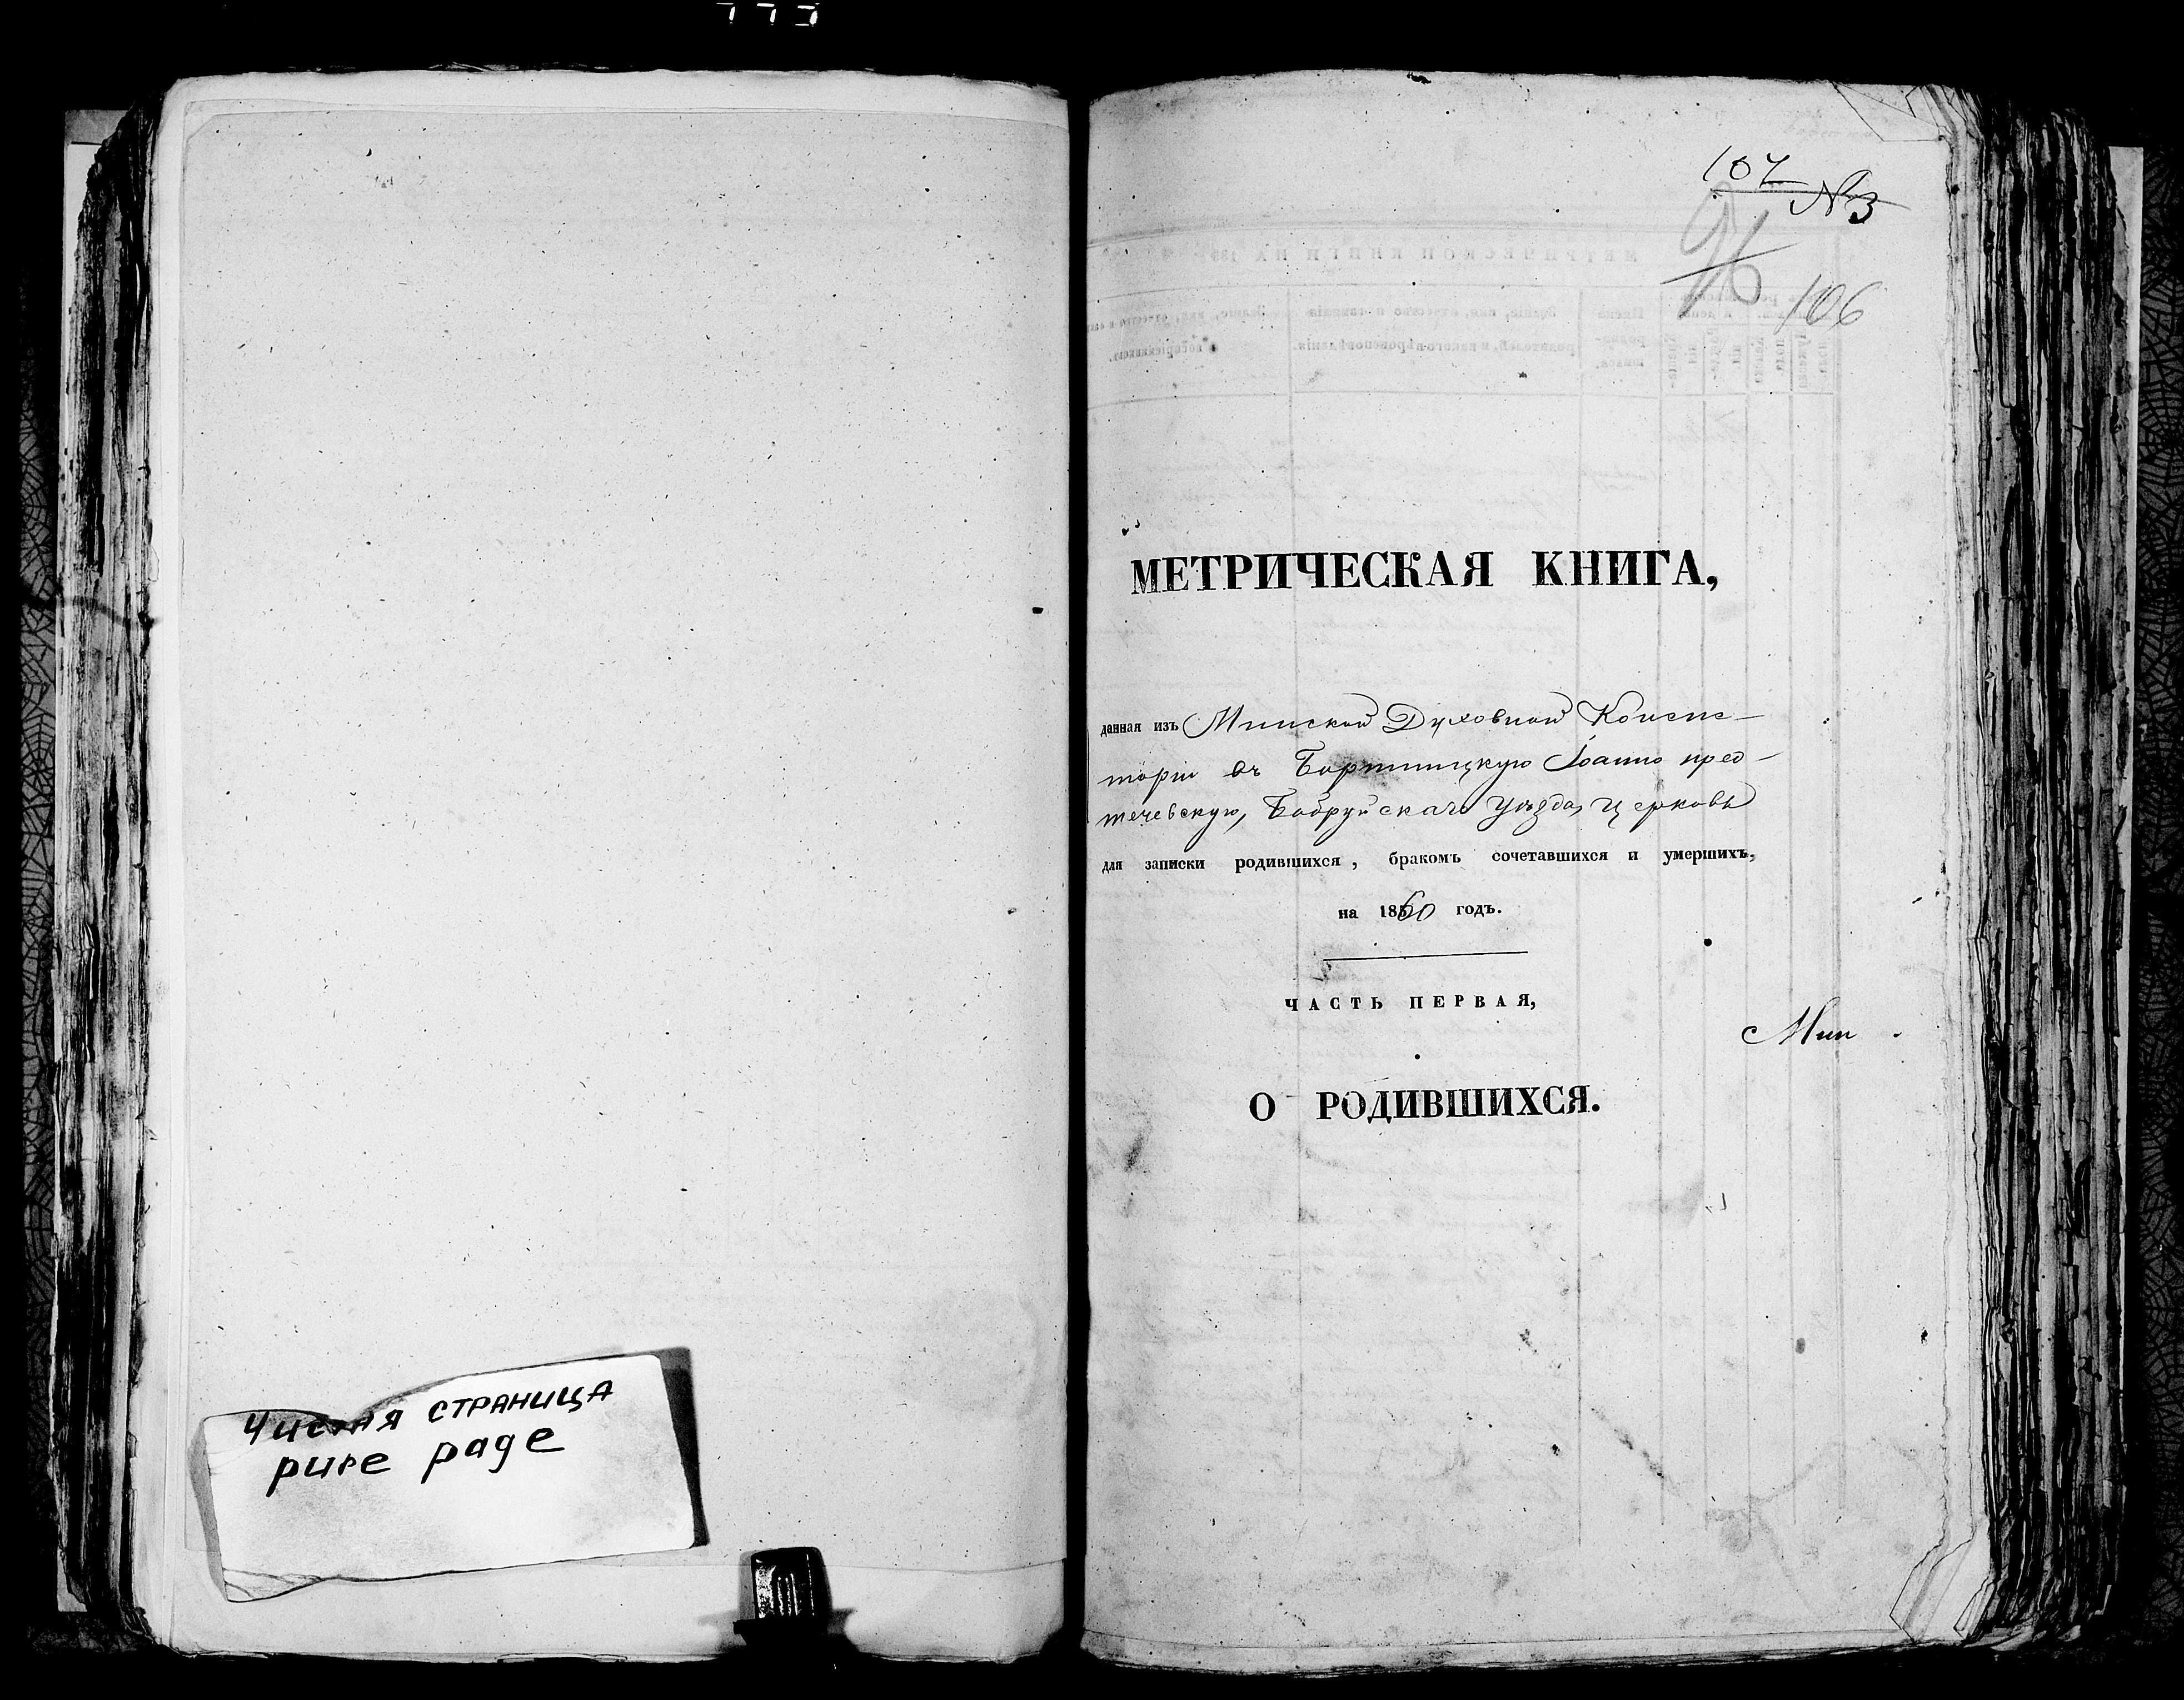 Чистая страница
pure page
107
№ 3
96
106
МЕТРИЧЕСКАЯ КНИГА,
данная изъ Минской Духовной Консис-
торіи въ Бортницкую Іоанно пред-
течевскую, Бобруйскаго уѣзда, церковь
для записки родившихся, бракомъ сочетавшихся и умершихъ,
на 1860 годъ.
ЧАСТЬ ПЕРВАЯ,
Мин
О РОДИВШИХСЯ.